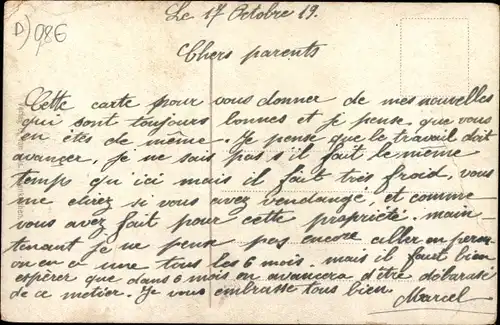 D) 98E
Le 17 Octobre 19.
Chers parents
Cette carte pour vous donner de mes nouvelles
qui sont toujours bonnes et je pense que vous
en êtes de même. Je pense que le travail doit
avancer, je ne sais pas s'il fait le même
temps qu'ici mais il fait très froid, vous
me direz si vous avez vendangé, et comme
vous avez fait pour cette propriété. main-
tenant je ne pense pas encore aller en perm
on en a une tous les 6 mois. mais il faut bien
espérer que dans 6 mois on avancera d'être débarasé
de ce métier. Je vous embrasse tous bien
Marcel